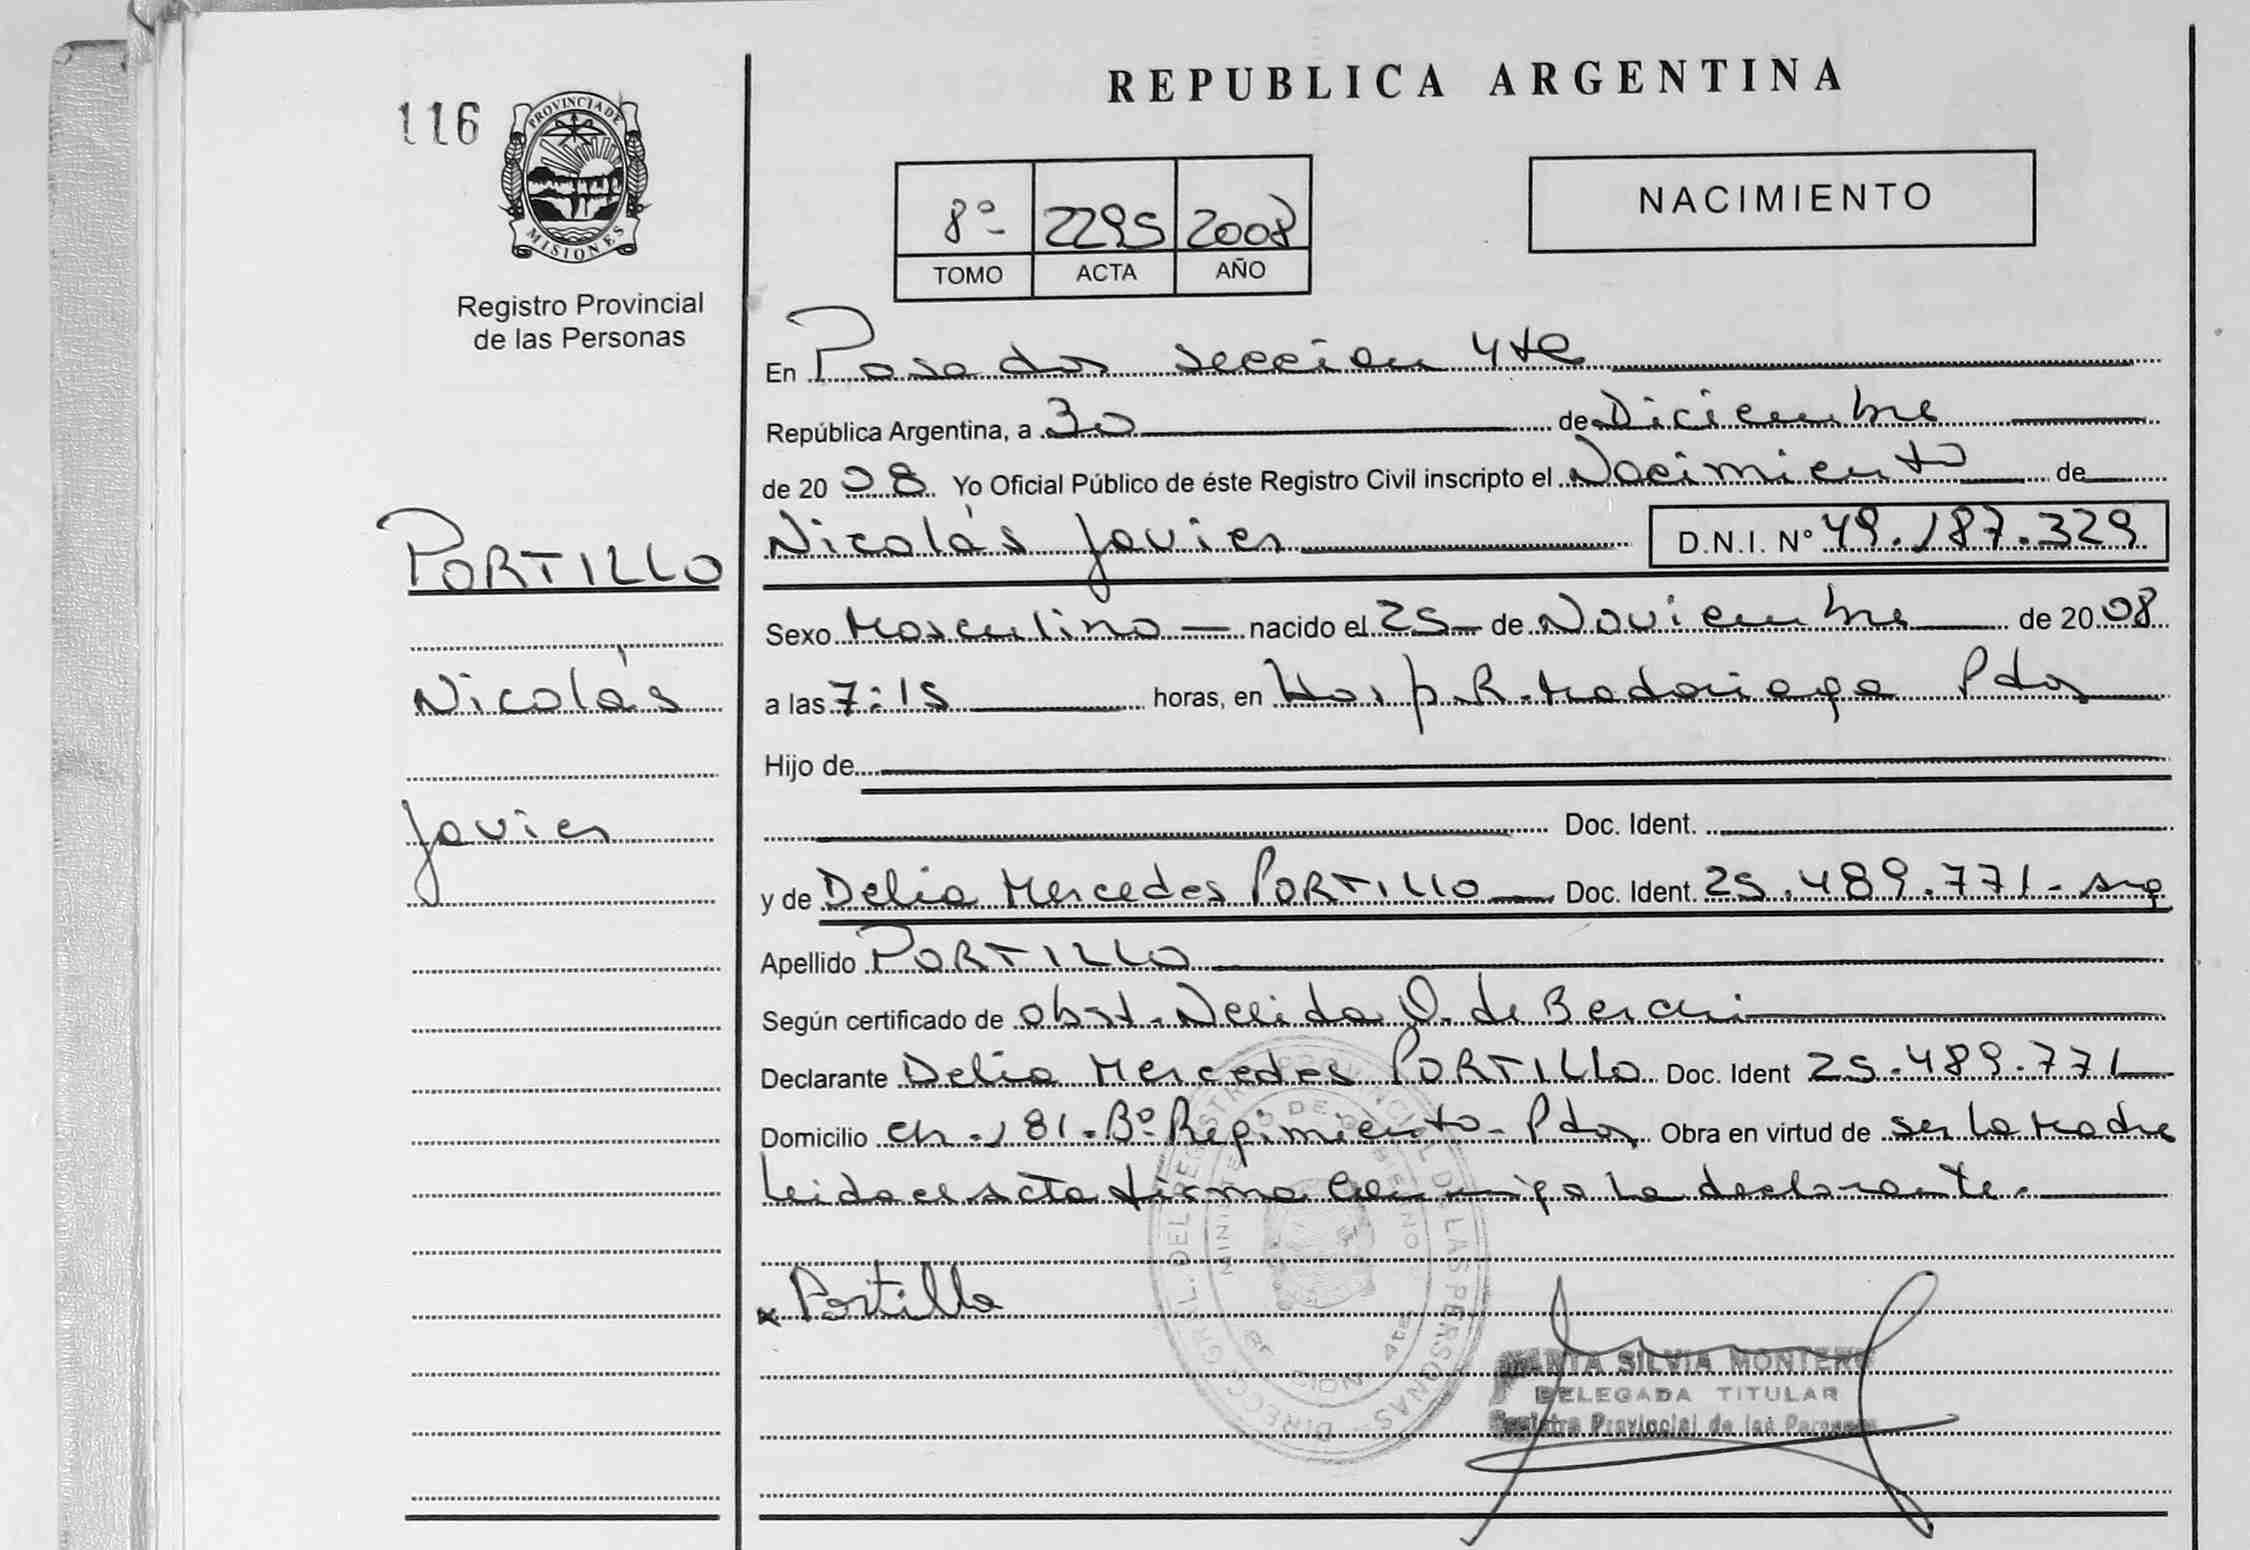 REPUBLICA ARGENTINA
116
PROVINCIA DE
MISIONES
Registro Provincial
de las Personas
8º 2295 2008
TOMO ACTA AÑO
NACIMIENTO
En Posadas sección 4ta
República Argentina, a 30 de Diciembre
de 2008 Yo Oficial Público de éste Registro Civil inscripto el Nacimiento de
Nicolás Javier D.N.I. Nº 49.187.329
PORTILLO
Nicolás
Javier
Sexo Masculino nacido el 25 de Noviembre de 2008
a las 7:15 horas, en Hosp. R. Madariaga Pdas
Hijo de
Doc. Ident.
y de Delia Mercedes PORTILLO Doc. Ident. 25.489.771 - arg
Apellido PORTILLO
Según certificado de obst. Nelida O. de
Declarante Delia Mercedes PORTILLO Doc. Ident 25.489.771
Domicilio ch. 181. Bº Regimiento - Pdas Obra en virtud de ser la Madre
leida el acta firma conmigo la declarante.
x Portillo
DIRECC. GRAL. DEL REGISTRO PROVINCIAL DE LAS PERSONAS
MINISTERIO DE GOBIERNO
4ta
SILVIA MONTERO
DELEGADA TITULAR
Registro Provincial de las Personas